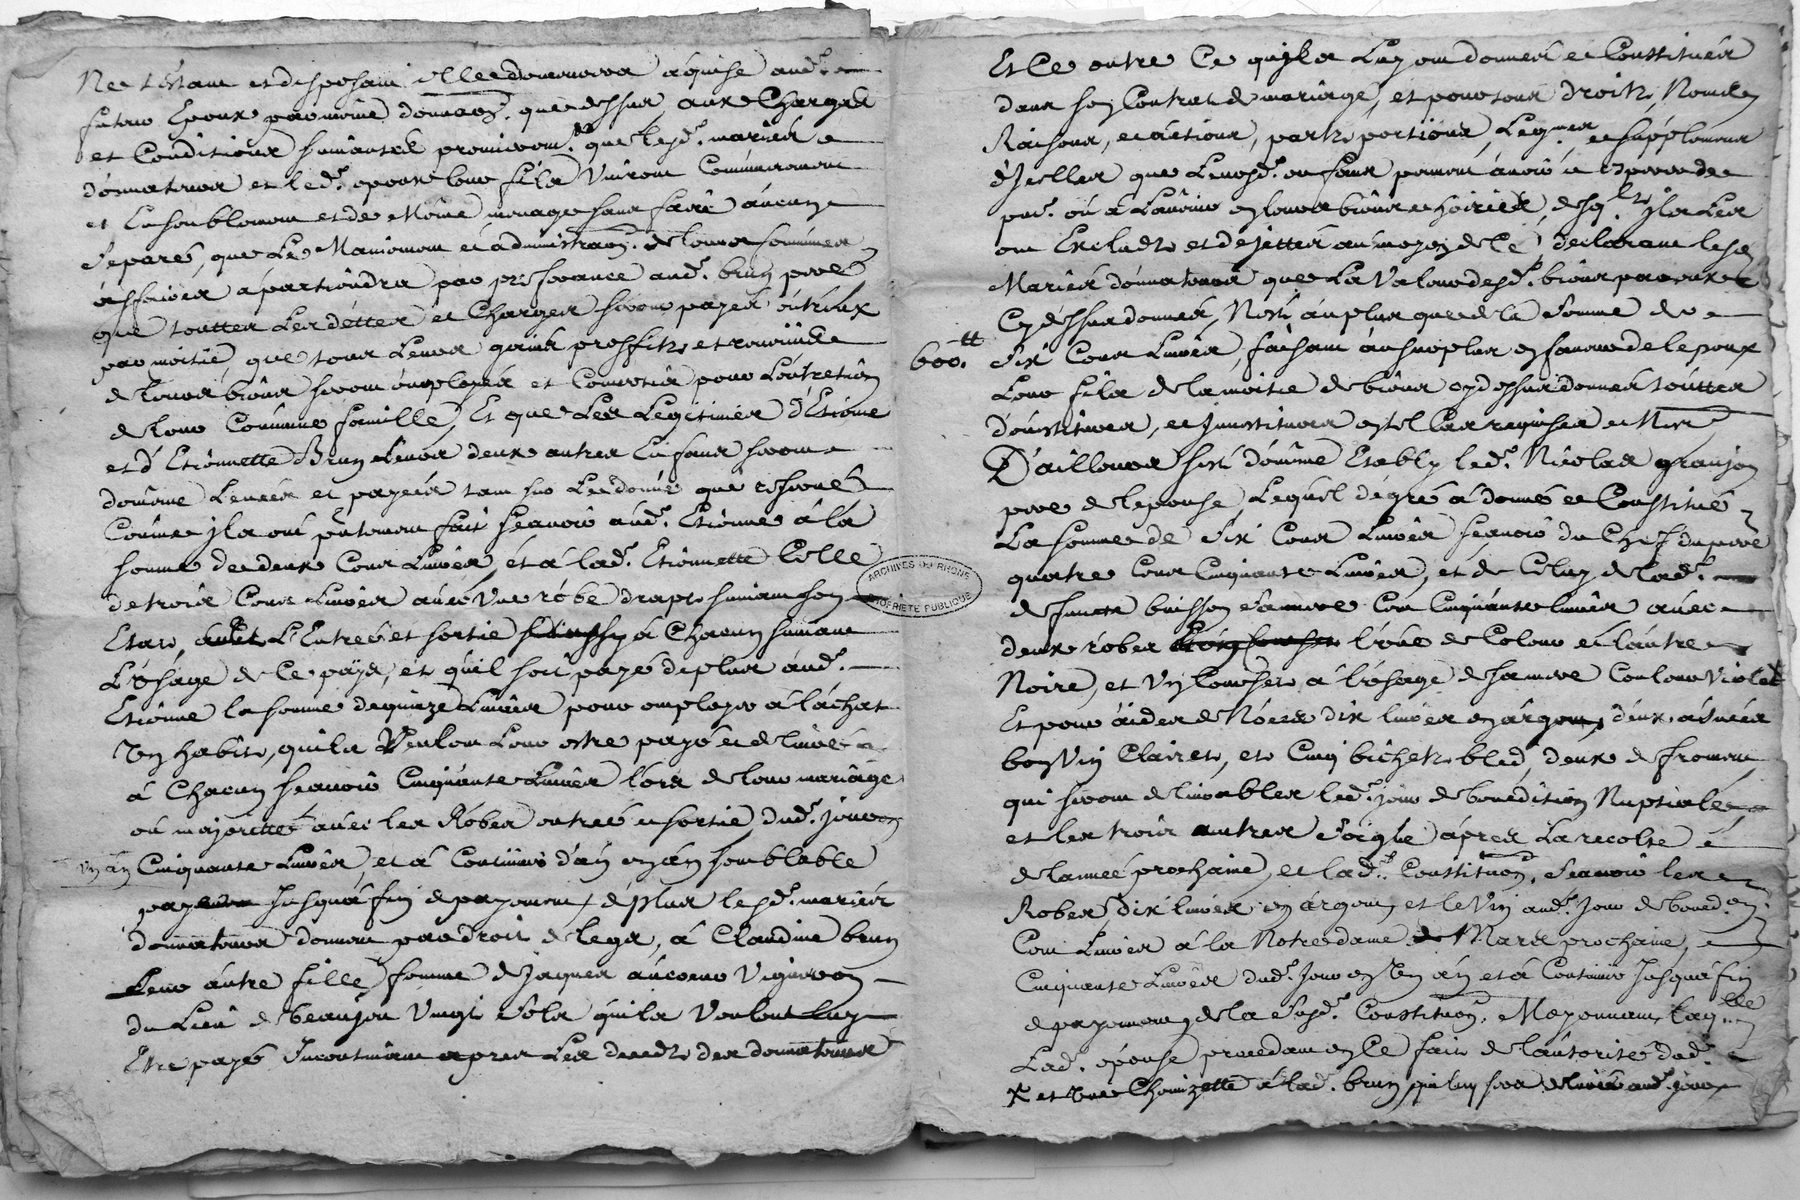 et disposant elle demeurera aquise aud.
futur Epoux par même donnaõn. que dessus, aux Charges
et Conditions suivantes promierem.t que lesd. mariés
donnateurs et led. epoux leur fils Vivront Communement
et Ensemblement et de Même menage sans faire aucune
separé, que Le Maniement et administraõn. de leurs communes
affaires apartiendra par preferance aud. brun pere
que touttes Les dettes et Charges seront payés entr'eux
par moitié, que tous Leurs gains proffits et revenûs
de leurs biens seront employés et Convertis pour L'entretien
de leur Commune famille, Et que Les Legitimes d'Etienne
et d'Etiennette Brun leurs deux autres Enfans seront
Comme ils ont fait scavoir aud. Etienne à la
somme de deux Cens Livres, et à lad. Etiennette Celle
de trois Cens Livres avec Une robe drap suivant son
Etat, L'Entrée et sortie à Chacun suivant
L'Usage de Ce pays, et qu'il soit payé de plus aud.
Etienne la somme de quinze Livres pour employer à l'achat
d'Un habits, qu'ils Veulent Leur estre payé et delivré
à Chacun scavoir Cinquante Livres lors de leur mariage
ou majorette avec les Robes entrée et sortie, dud. jour en
un an Cinquante Livres, et à Continuer d'an en an semblable
payement Jusqu'à fin de payement, de plus lesd. mariés
donnateurs donnent par droit de legs, à Claudine brun
Leur autre fille femme de Jaques Vigneron
du Lieu de beaujeu Vingt sols qu'ils Veulent Luy
Etre payés Incontinant apres Les decedz des donnateurs
Et Ce outre Ce qu'ils Luy ont donnés et Constitués
dans son Contrat de mariage, et pour tous droitz, Noms,
Raisons, et actions, partz, portions, Legmes, et supplement
d'Jcelles que Leursd. enfans peuvent avoir et espere de
pnt. ou à L'avenir en leurs biens et hoiries, desqls. ils Les
ont Excludz et dejettés au moyen de Ce, declarant lesd.
Mariés donnateurs que La Valeur desd. biens par eux
Cy dessus donnés, N'est au plus que de la somme de
600.tt six Cens Livres, faisant au surplus en faveur de lepoux
Leur fils de la moitié de biens cy dessus donnés touttes
devestitures, et Jnvestitures en tel Cas requises et Nesr.
D'ailleurs s'est d'ûme Etably led. Nicolas granjon
pere de lepouse, Lequel de gré à donné et Constitué
La somme de six Cens Livres scavoir du Chef du pere
quatre Cens Cinquante Livres, et de Celuy de lad.
defunte buisson sa mere Cent Cinquante livres avec
deux robes l'une de Couleur et l'autre
Noire, et Un à l'usage de sa mere Couleur Violet
Et pour aider de Noces dix livres en argent, deux asnées
bon Vin Clairet, et Cinq bichetz bled, deux de froment
qui seront delivrables led. jour de benediction Nuptiale
et les trois autres seigle apres La recolte
de l'année prochaine, et lad. Constituõn. scavoir les
Robes dix livres en argent, et le Vin aud. Jour de bened.on
Cent Livres à la Notre dame de Mars prochaine,
Cinquante Livres dud. Jour en Un an et à Continuer Jusqu'à fin
de payement de la susd. Constituõn. Moyennant laqlle
Lad. epouse procedant en Ce fait de l'autorité dud.
X et Une à lad. brun, qui luy sera delivré aud. jour